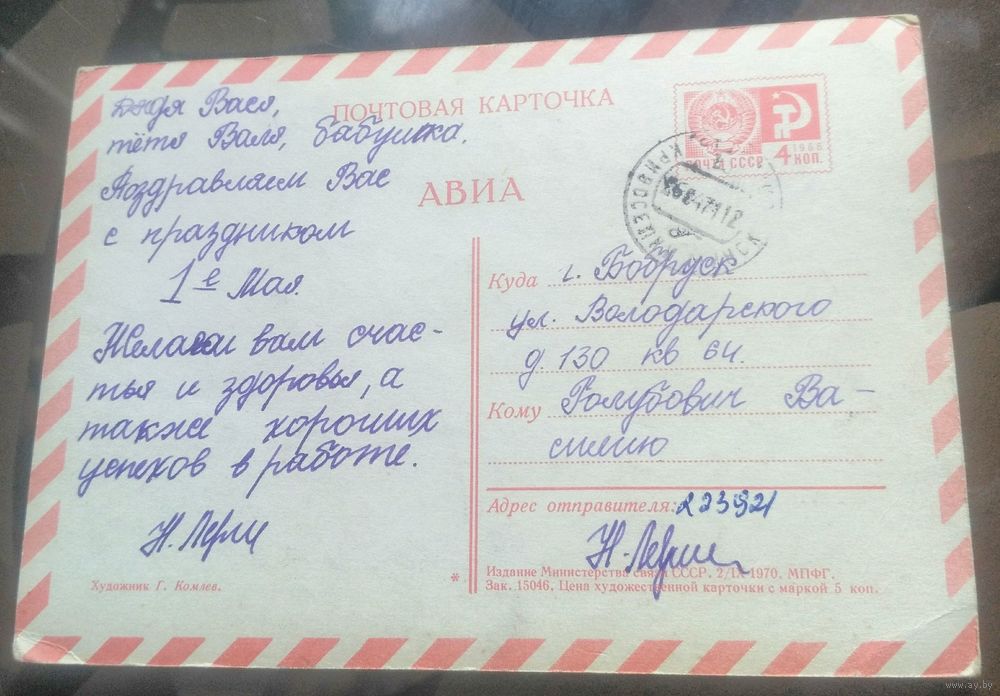 дядя Вася,
тётя Валя, бабушка.
Поздравляем Вас
с праздником
1е Мая.
Желаем вам счас-
тья и здоровья, а
также хороших
успехов в работе.
Н. Лерм
Художник Г. Комлев.
ПОЧТОВАЯ КАРТОЧКА
АВИА
ПОЧТА СССР 4 КОП.
1968
Куда г. Бобруйск
ул. Володарского
д. 130 кв 64.
Кому Голубович Ва-
силию
Адрес отправителя: 223921
*
Издание Министерства связи СССР. 2/IX-1970. МПФГ.
Зак. 15046. Цена художественной карточки с маркой 5 коп.
www.ay.by